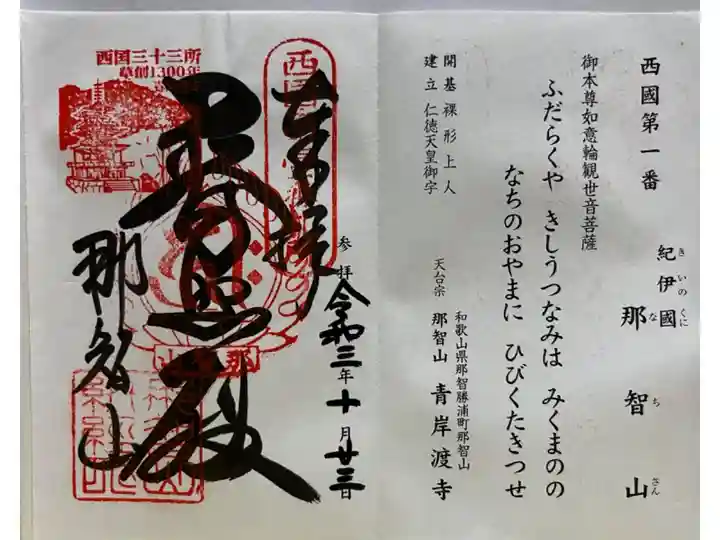 西國第一番
紀伊國
きいのくに
那智山
なちさん
御本尊如意輪観世音菩薩
ふだらくや きしうつなみは みくまのの
なちのおやまに ひびくたきつせ
開基 裸形上人
建立 仁徳天皇御宇
和歌山県那智勝浦町那智山
天台宗 那智山 青岸渡寺
奉拝
参拝 令和三年十月廿三日
普照殿
那智山
西国三十三所
草創1300年
西国
那智山